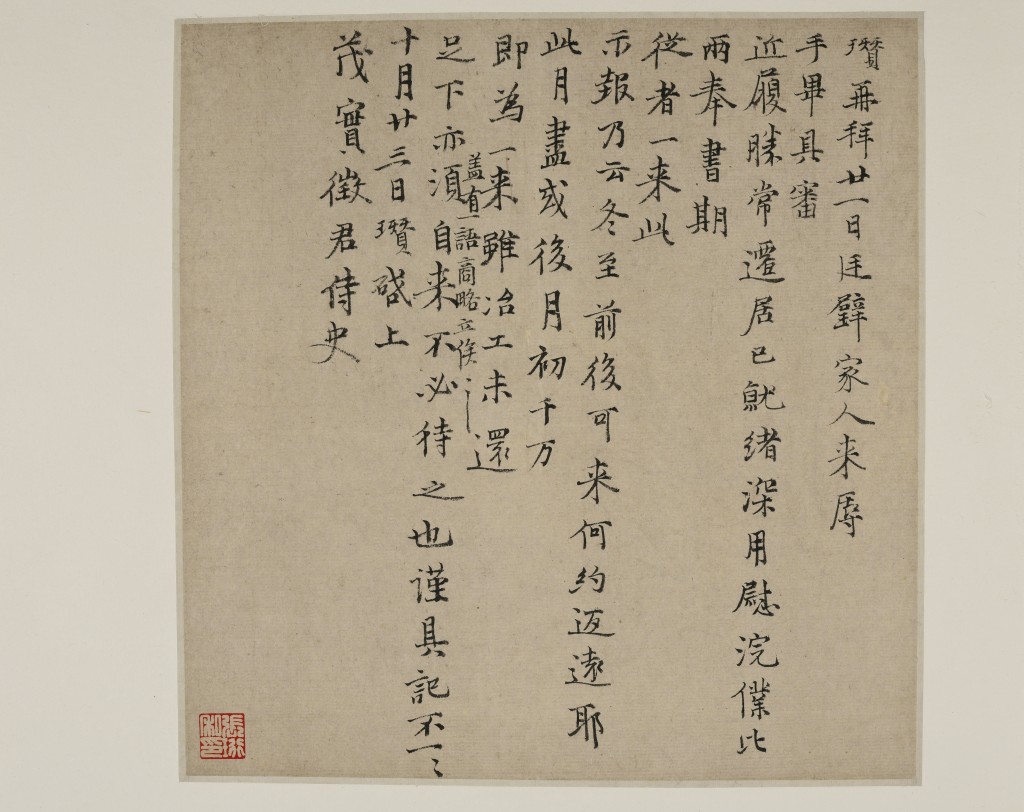 瓚再拜廿一日廷壁家人来辱
手畢具審
近履勝常遷居已就緒深用慰浣僕比
兩奉書期
從者一来此
示報乃云冬至前後可来何約迓遠耶
此月盡或後月初千万
即為一来雖冶工未還
盖有一語商略立俟
足下亦須自来不必待之也謹具記不一一
十月廿三日瓚啓上
茂實徵君侍史